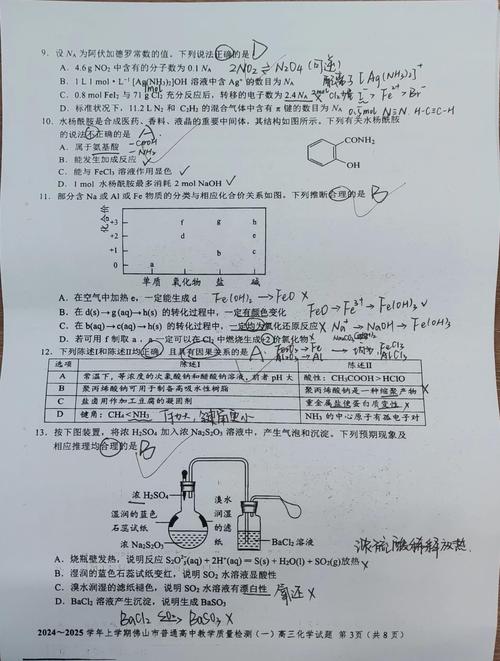 9. 设 NA 为阿伏加德罗常数的值。下列说法正确的是 D
A. 4.6 g NO2 中含有的分子数为 0.1 NA 2NO2 ⇌ N2O4 (可逆)
B. 1 L 1 mol·L⁻¹ [Ag(NH3)2]OH 溶液中含 Ag⁺ 的数目为 NA [Ag(NH3)2]⁺
1mol
C. 0.8 mol FeI2 与 71 g Cl2 充分反应后，转移的电子数为 2.4 NA × I⁻ > Fe²⁺ > Br⁻
D. 标准状况下，11.2 L N2 和 C2H2 的混合气体中含有 π 键的数目为 NA 0.5mol N≡N H-C≡C-H
10. 水杨酰胺是合成医药、香料、液晶的重要中间体，其结构如图所示。下列有关水杨酰胺
的说法不正确的是 A
A. 属于氨基酸 -COOH -NH2
B. 能发生加成反应 ✓
C. 能与 FeCl3 溶液作用显色 ✓
D. 1 mol 水杨酰胺最多消耗 2 mol NaOH ✓
CONH2
OH
11. 部分含 Na 或 Al 或 Fe 物质的分类与相应化合价关系如图。下列推断合理的是 B
化合价
+3 f g h
+2 d e
+1 b c
0 a
单质 氧化物 盐 碱
A. 在空气中加热 e，一定能生成 d Fe(OH)2 → FeO ×
B. 在 d(s)→g(aq)→h(s) 的转化过程中，一定有颜色变化 FeO → Fe³⁺ → Fe(OH)3 ✓
C. 在 b(aq)→c(aq)→h(s) 的转化过程中，一定均为氧化还原反应 × Na⁺ → NaOH → Fe(OH)3
D. 若可用 f 制取 a，a 一定可以在 Cl2 中燃烧生成+2 价氯化物 ×
12. 下列陈述Ⅰ和陈述Ⅱ均正确，且具有因果关系的是 A
选项 陈述Ⅰ 陈述Ⅱ
A 常温下，等浓度的次氯酸钠和醋酸钠溶液，前者 pH 大 酸性：CH3COOH＞HClO
B 聚丙烯酸钠可用于制备高吸水性树脂 聚丙烯酸钠是一种缩聚产物 ×
C 盐卤用作加工豆腐的凝固剂 重金属盐使蛋白质变性 ×
D 键角：CH4＜NH3 NH3 的中心原子有孤电子对
13. 按下图装置，将浓 H2SO4 加入浓 Na2S2O3 溶液中，产生气泡和沉淀。下列预期现象及
相应推理均合理的是 B
浓 H2SO4
湿润的蓝色
石蕊试纸
浓 Na2S2O3
溴水
润湿
的滤
纸
BaCl2 溶液
浓硫酸稀释放热.
A. 烧瓶壁发热，说明反应 S2O3²⁻(aq) + 2H⁺(aq) = S(s) + H2O(l) + SO2(g)放热 ×
B. 湿润的蓝色石蕊试纸变红，说明 SO2 水溶液显酸性
C. 溴水润湿的滤纸褪色，说明 SO2 水溶液有漂白性 氧还 ×
D. BaCl2 溶液产生沉淀，说明生成 BaSO3
BaCl2 SO2→ BaSO3 ×
2024～2025 学年上学期佛山市普通高中教学质量检测（一）高三化学试题 第 3页（共 8 页）